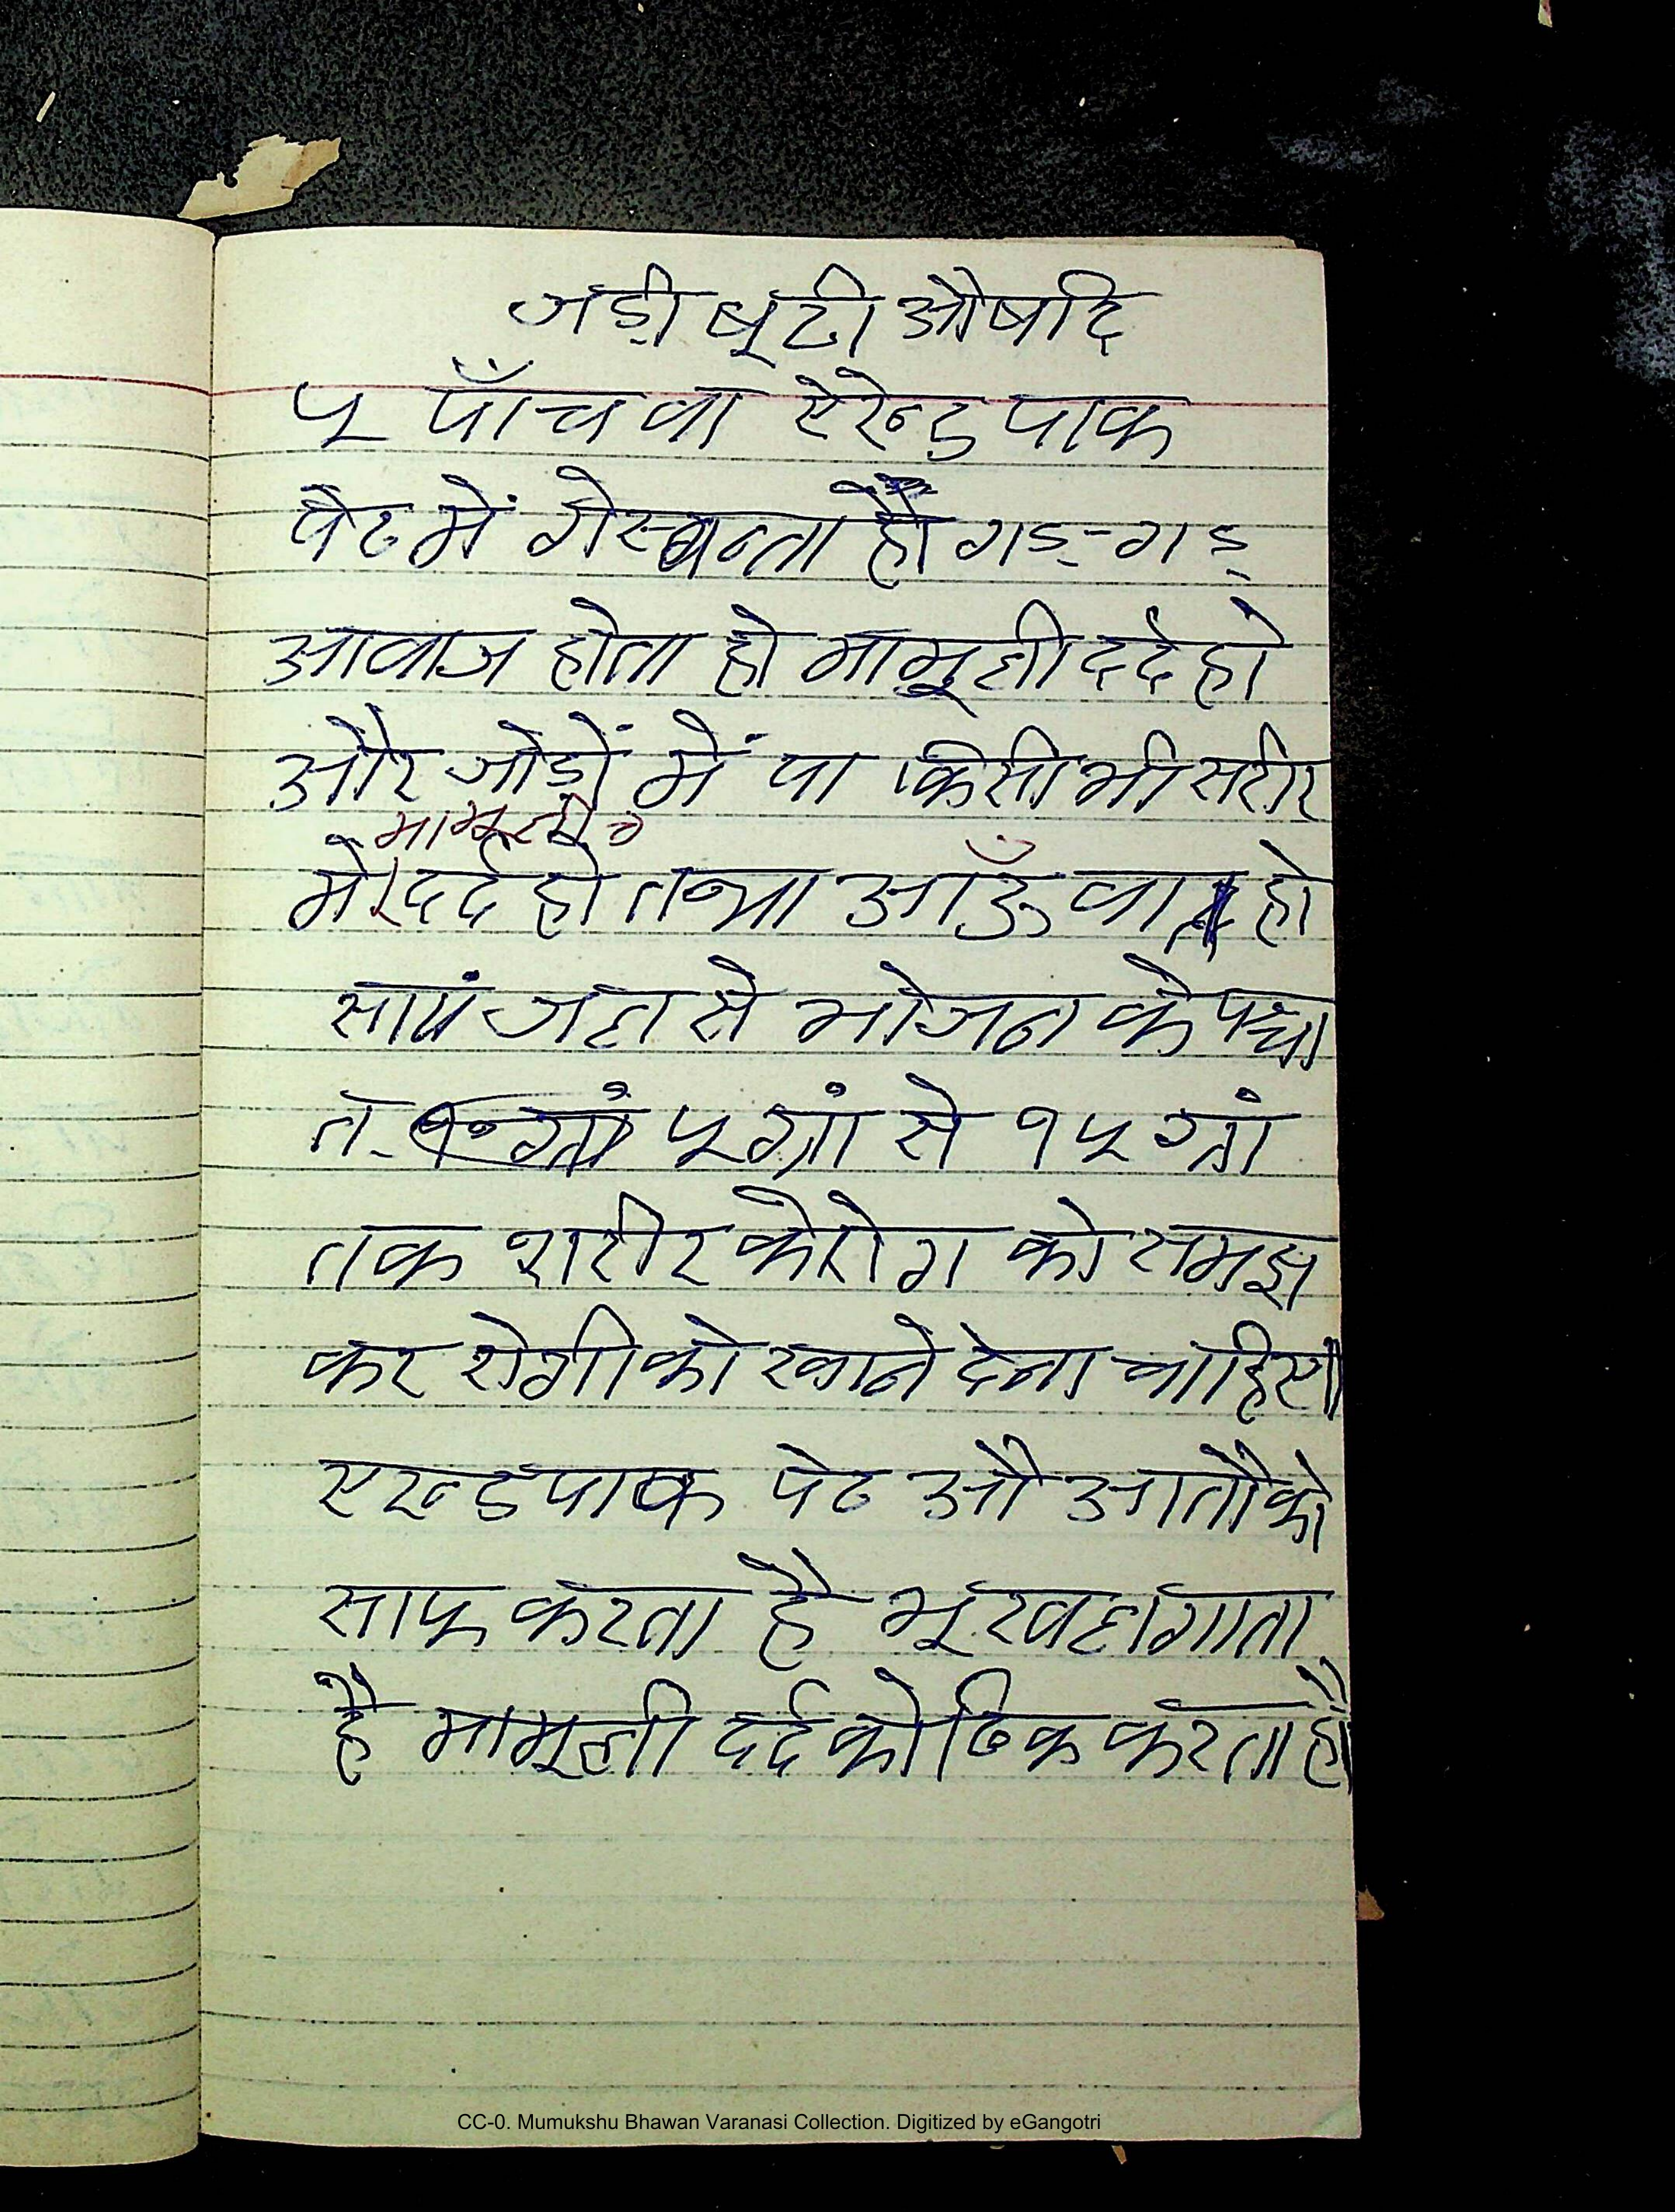 जड़ी बूटी औषदि
५ पाँचवा ऐरेन्ड पाक
पेट में गेस बनता हो गड़-गड़
आवाज होता हो मामूली दर्द हो
और जोड़ों में या किसी भी सरीर
मामूली
में दर्द हो तथा आँऊ वात हो
सायं जल से भोजन के पश्चा
त ५ ग्रां से १५ ग्रां
तक शरीर के रोग को समझ
कर रोगी को खाने देना चाहिए।
एरन्ड पाक पेट औ आतो को
साफ करता है भूख लगाता
है मामूली दर्द को ठिक करता है।
CC-0. Mumukshu Bhawan Varanasi Collection. Digitized by eGangotri